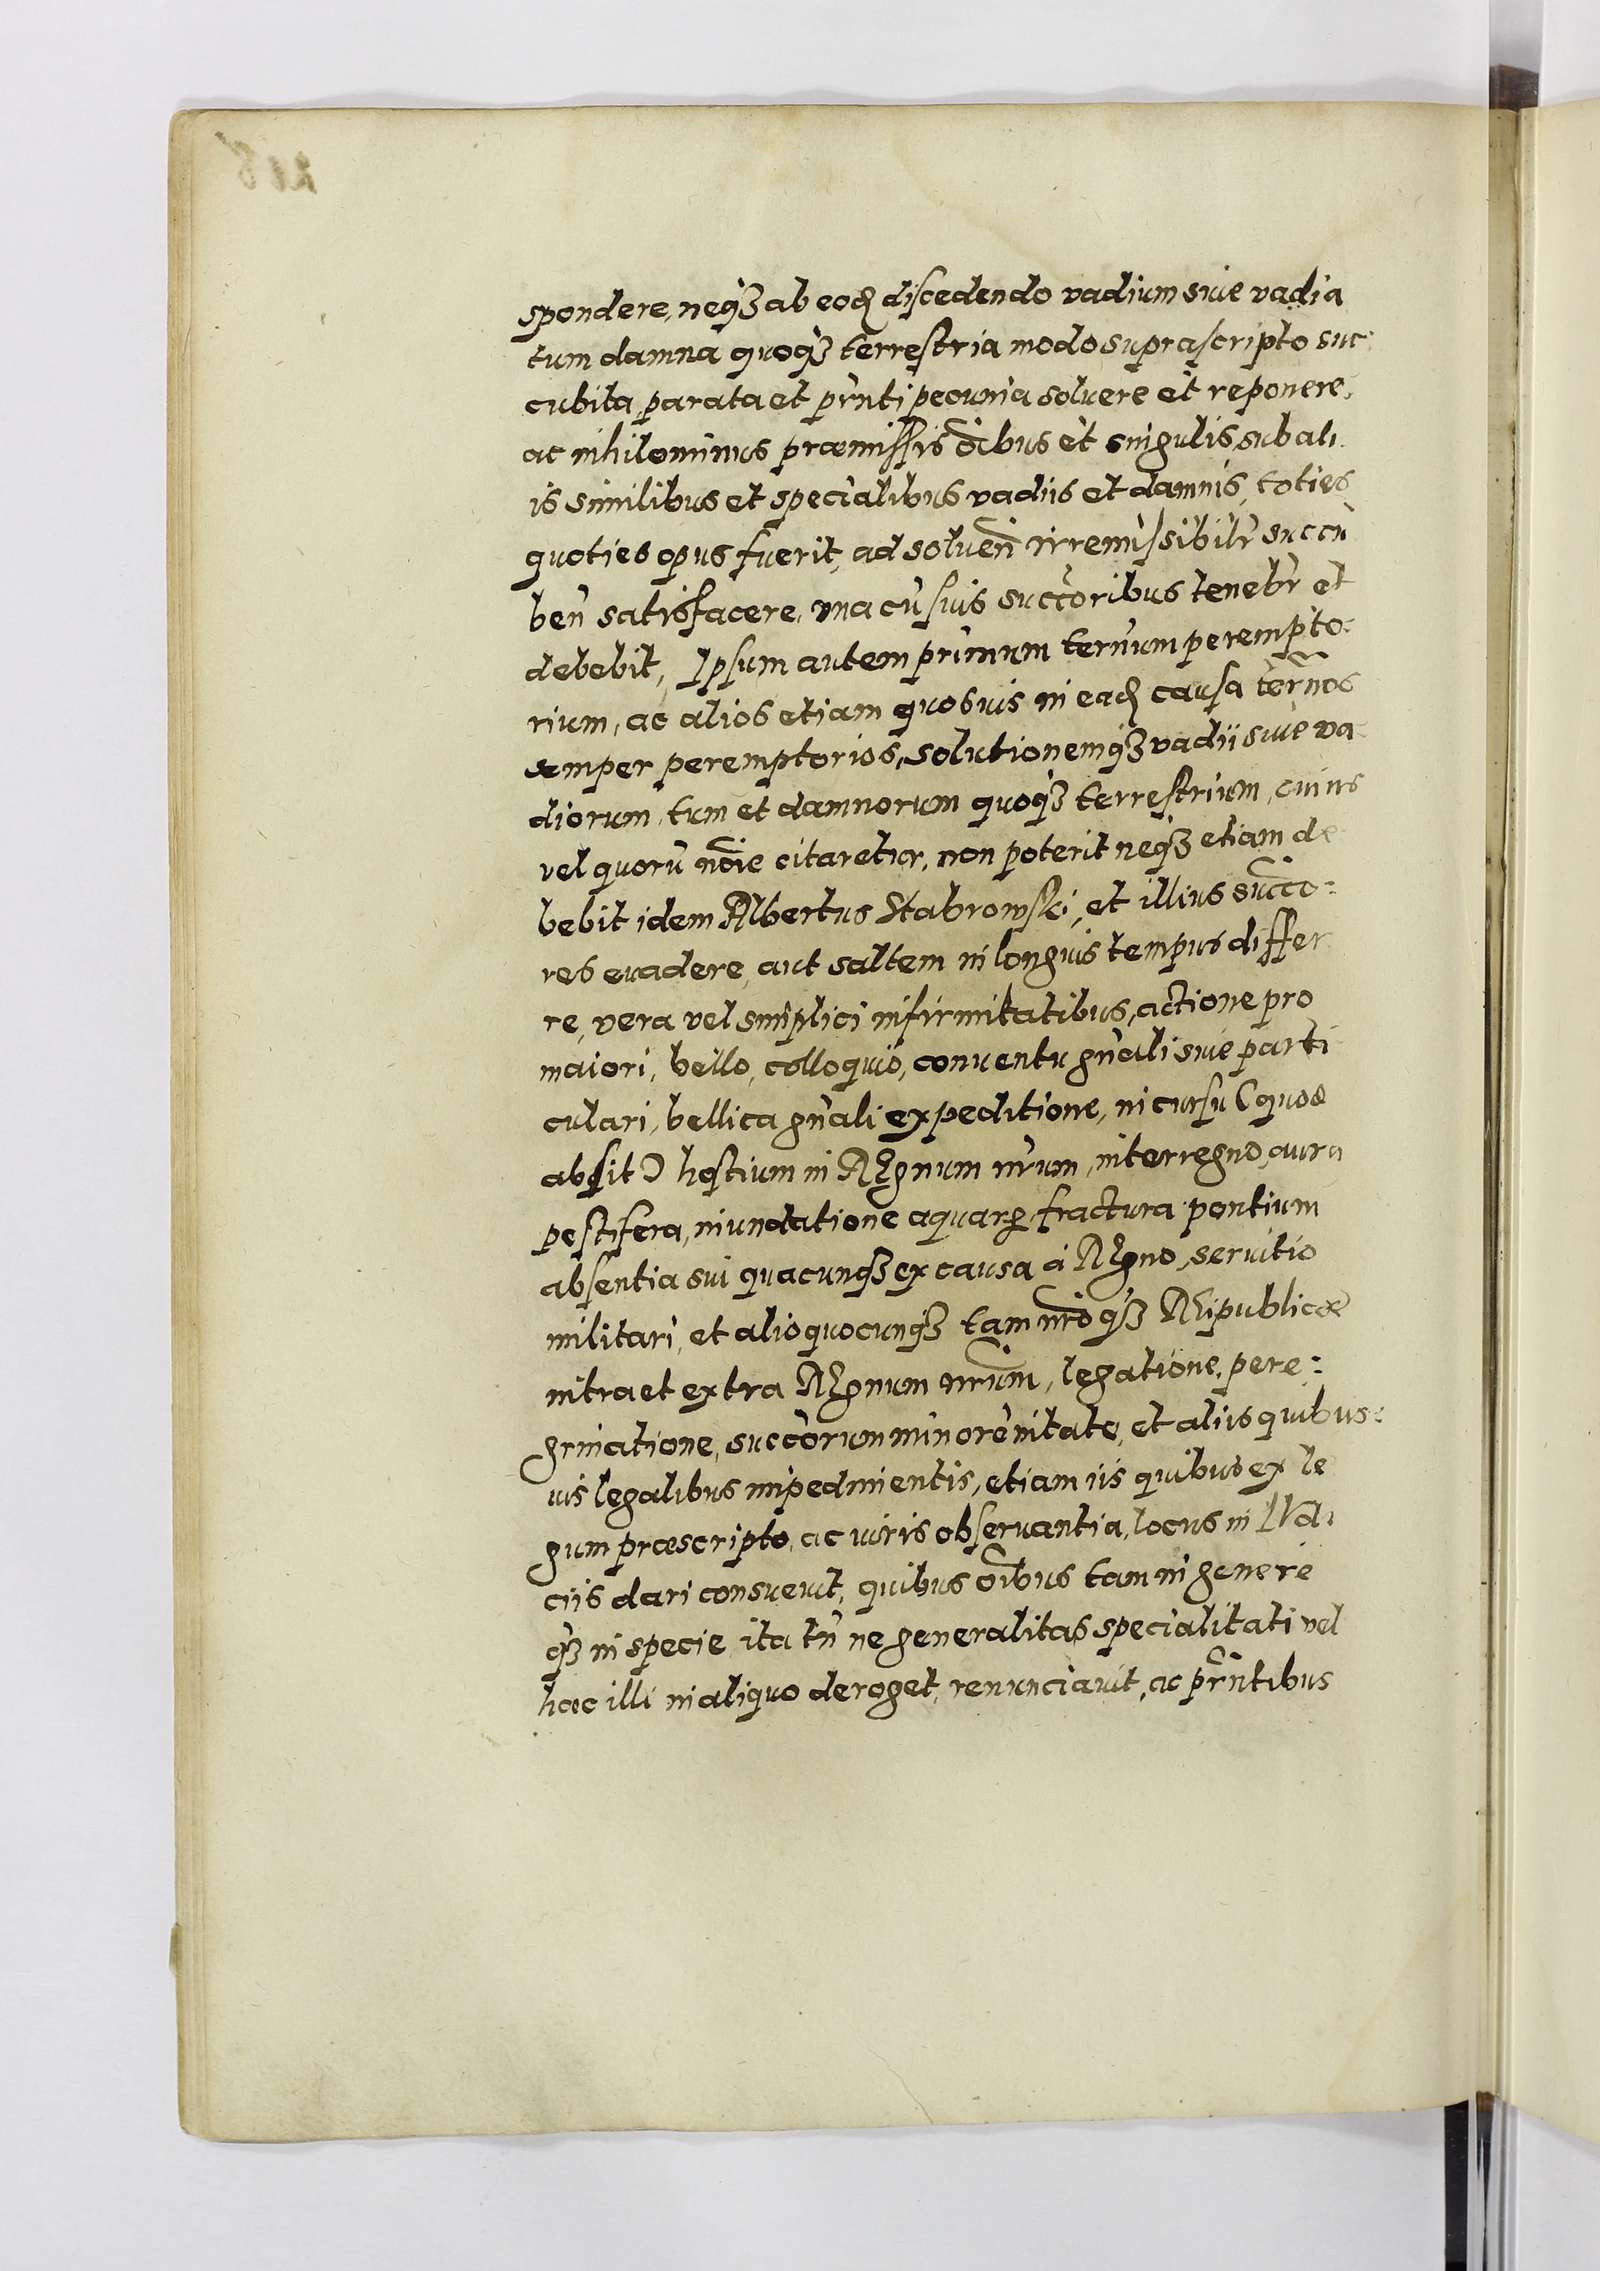 spondere, neqȝ ab eod discedendo vadium siue vadia
tum damna quoqȝ terrestria modo suprascripto suc
cubita, parata et prñti pecunia soluere et reponere,
ac nihilominus præmissis oĩbus et singulis, sub ali
is similibus et specialibus vadiis et damnis, toties
quoties opus fuerit, ad soluen̄ irremissibilr̃ succũ
ben̄ satisfacere, vna cũ suis succ̃oribus tenebr̃ et
debebit, Ipsum autem primum termĩum perempto:
rium, ac alios etiam quosuis in ead causa ter̃nos
semper peremptorios, solutionemqȝ vadii siue va
diorum, tum et damnorum quoqȝ terrestrium, cuius
vel quorũ nõie citaretur, non poterit neqȝ etiam de
bebit idem Albertus Stabrowski, et illius succ̃o:
res euadere, aut saltem in longius tempus differ
re, vera vel simplici infirmitatibus, actione pro
maiori, bello, colloquio, conuentu gñali siue parti
culari, bellica gñali expeditione, incursu (quod
absit) hostium in Regnum nr̃um, interregno, aura
pestifera, inundatione aquarꝝ fractura pontium
absentia sui quacunqȝ ex causa à Regno, seruitio
militari, et alio quocunqȝ tam nr̃o qȝ Reipublicæ
intra et extra Regnum nr̃um, legatione, pere:
grinatione, succ̃orum minorẽnitate, et aliis quibus:
uis legalibus impedimentis, etiam iis quibus ex le
gum præscripto, ac iuris obseruantia, locus in Iudi
ciis dari consueuit, quibus oĩbus tam in genere
qȝ in specie ita tñ ne generalitas specialitati vel
hæc illi in aliquo deroget, renunciauit, ac prñtibus